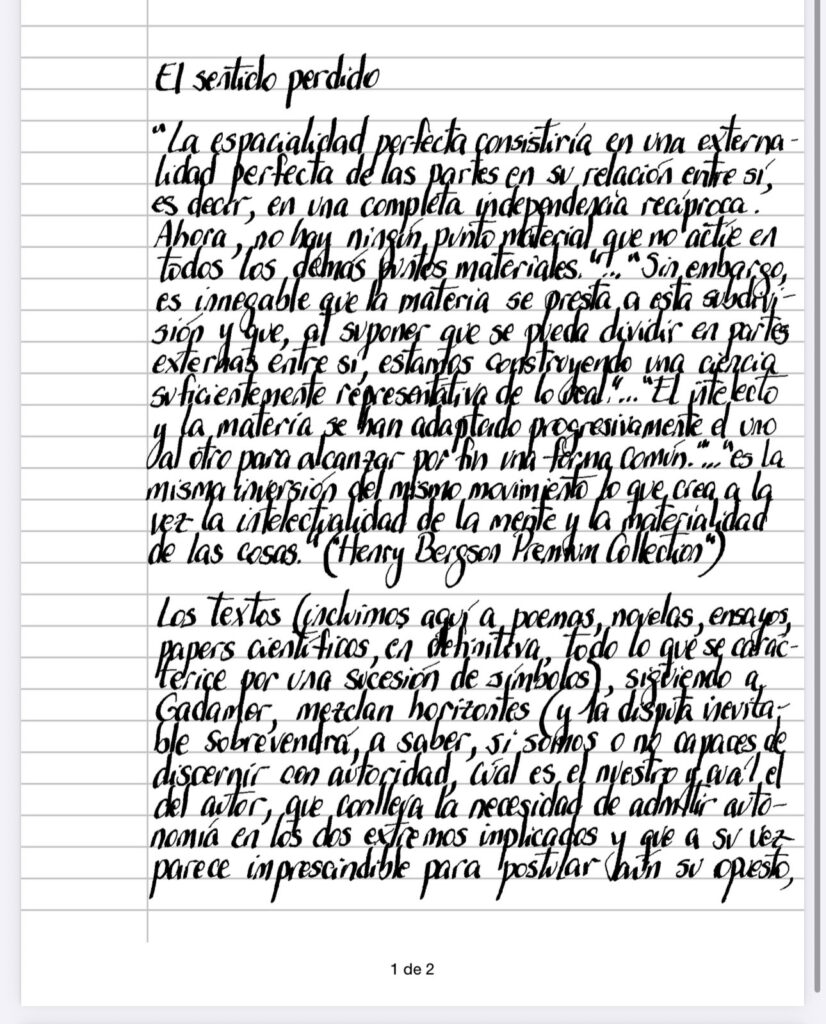 El sentido perdido
"La espacialidad perfecta consistiría en una externa-
lidad perfecta de las partes en su relación entre sí,
es decir, en una completa independencia recíproca.
Ahora, no hay ningún punto material que no actúe en
todos los demás puntos materiales."..."Sin embargo,
es innegable que la materia se presta a esta subdivi-
sión y que, al suponer que se pueda dividir en partes
externas entre sí, estamos construyendo una ciencia
suficientemente representativa de lo real."..."El intelecto
y la materia se han adaptado progresivamente el uno
al otro para alcanzar por fin una forma común."..."es la
misma inversión del mismo movimiento lo que crea a la
vez la intelectualidad de la mente y la materialidad
de las cosas." ("Henry Bergson Premium Collection")
Los textos (incluimos aquí a poemas, novelas, ensayos,
papers científicos, en definitiva, todo lo que se carac-
terice por una sucesión de símbolos), siguiendo a
Gadamer, mezclan horizontes (y la disputa inevita-
ble sobrevendrá, a saber, si somos o no capaces de
discernir con autoridad, cuál es el nuestro y cuál el
del autor, que conlleva la necesidad de admitir auto-
nomía en los dos extremos implicados y que a su vez
parece imprescindible para postular aún su opuesto,
1 de 2